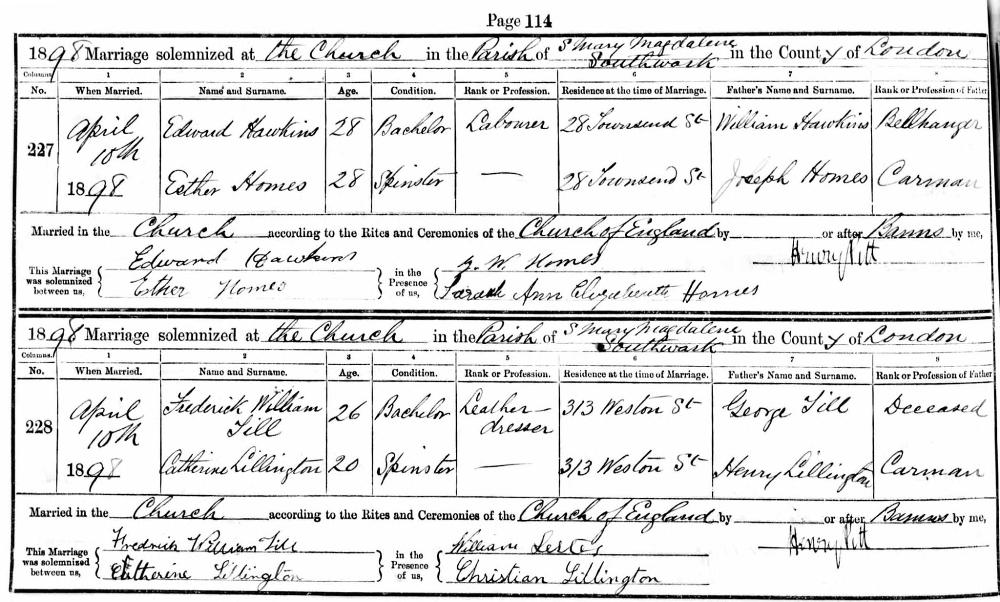 Page 114
1898 Marriage solemnized at the Church in the Parish of S Mary Magdalene Southwark in the County of London
Columns 1 2 3 4 5 6 7 8
No. When Married. Name and Surname. Age. Condition. Rank or Profession. Residence at the time of Marriage. Father's Name and Surname. Rank or Profession of Father
227 April 10th 1898 Edward Hawkins 28 Bachelor Labourer 28 Townsend St William Hawkins Bellhanger
Esther Homes 28 Spinster — 28 Townsend St Joseph Homes Carman
Married in the Church according to the Rites and Ceremonies of the Church of England by or after Banns by me,
Henry Pitt
This Marriage was solemnized between us, Edward Hawkins Esther Homes in the Presence of us, W. Homes Sarah Ann Elizabeth Homes
1898 Marriage solemnized at the Church in the Parish of S Mary Magdalene Southwark in the County of London
Columns. 1 2 3 4 5 6 7 8
No. When Married. Name and Surname. Age. Condition. Rank or Profession. Residence at the time of Marriage. Father's Name and Surname. Rank or Profession of Father
228 April 10th 1898 Frederick William Till 26 Bachelor Leather-dresser 313 Weston St George Till Deceased
Catherine Lillington 20 Spinster — 313 Weston St Henry Lillington Carman
Married in the Church according to the Rites and Ceremonies of the Church of England by or after Banns by me,
Henry Pitt
This Marriage was solemnized between us, Fredrick William Till Catherine Lillington in the Presence of us, William Christian Lillington